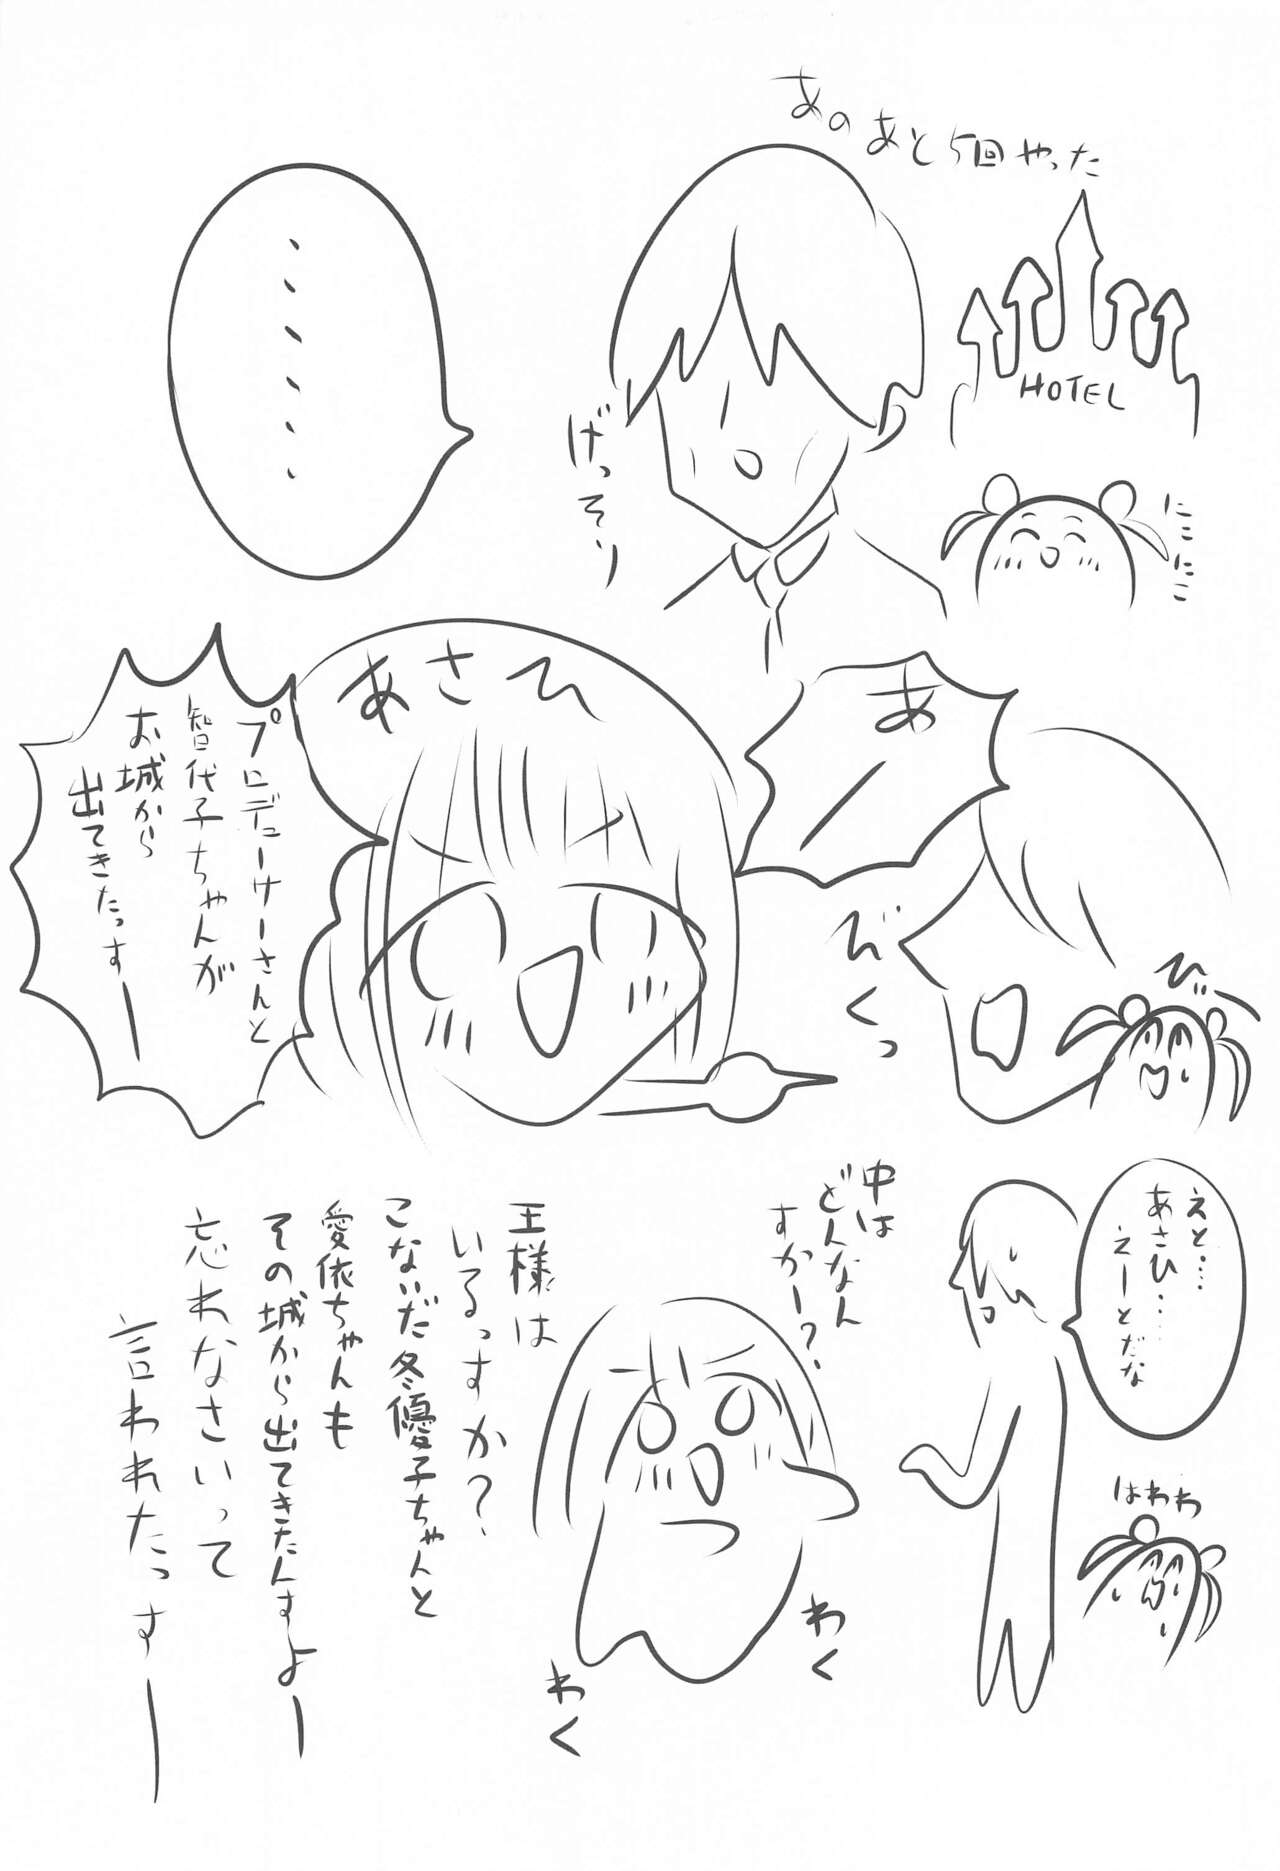 あのあと5回やった
HOTEL
にこ
にこ
げっそり
・・・・・・
あ
／
びくっ
びー
あさひ
プロデューサーさんと
智代子ちゃんが
お城から
出てきたっすー
えと・・・・
あさひ・・・・
えーとだな
はわわ
中は
どんなん
すかー?
わく
わく
王様は
いるっすか?
こないだ冬優子ちゃんと
愛依ちゃんも
その城から出てきたんすよー
忘れなさいって
言われたっすー